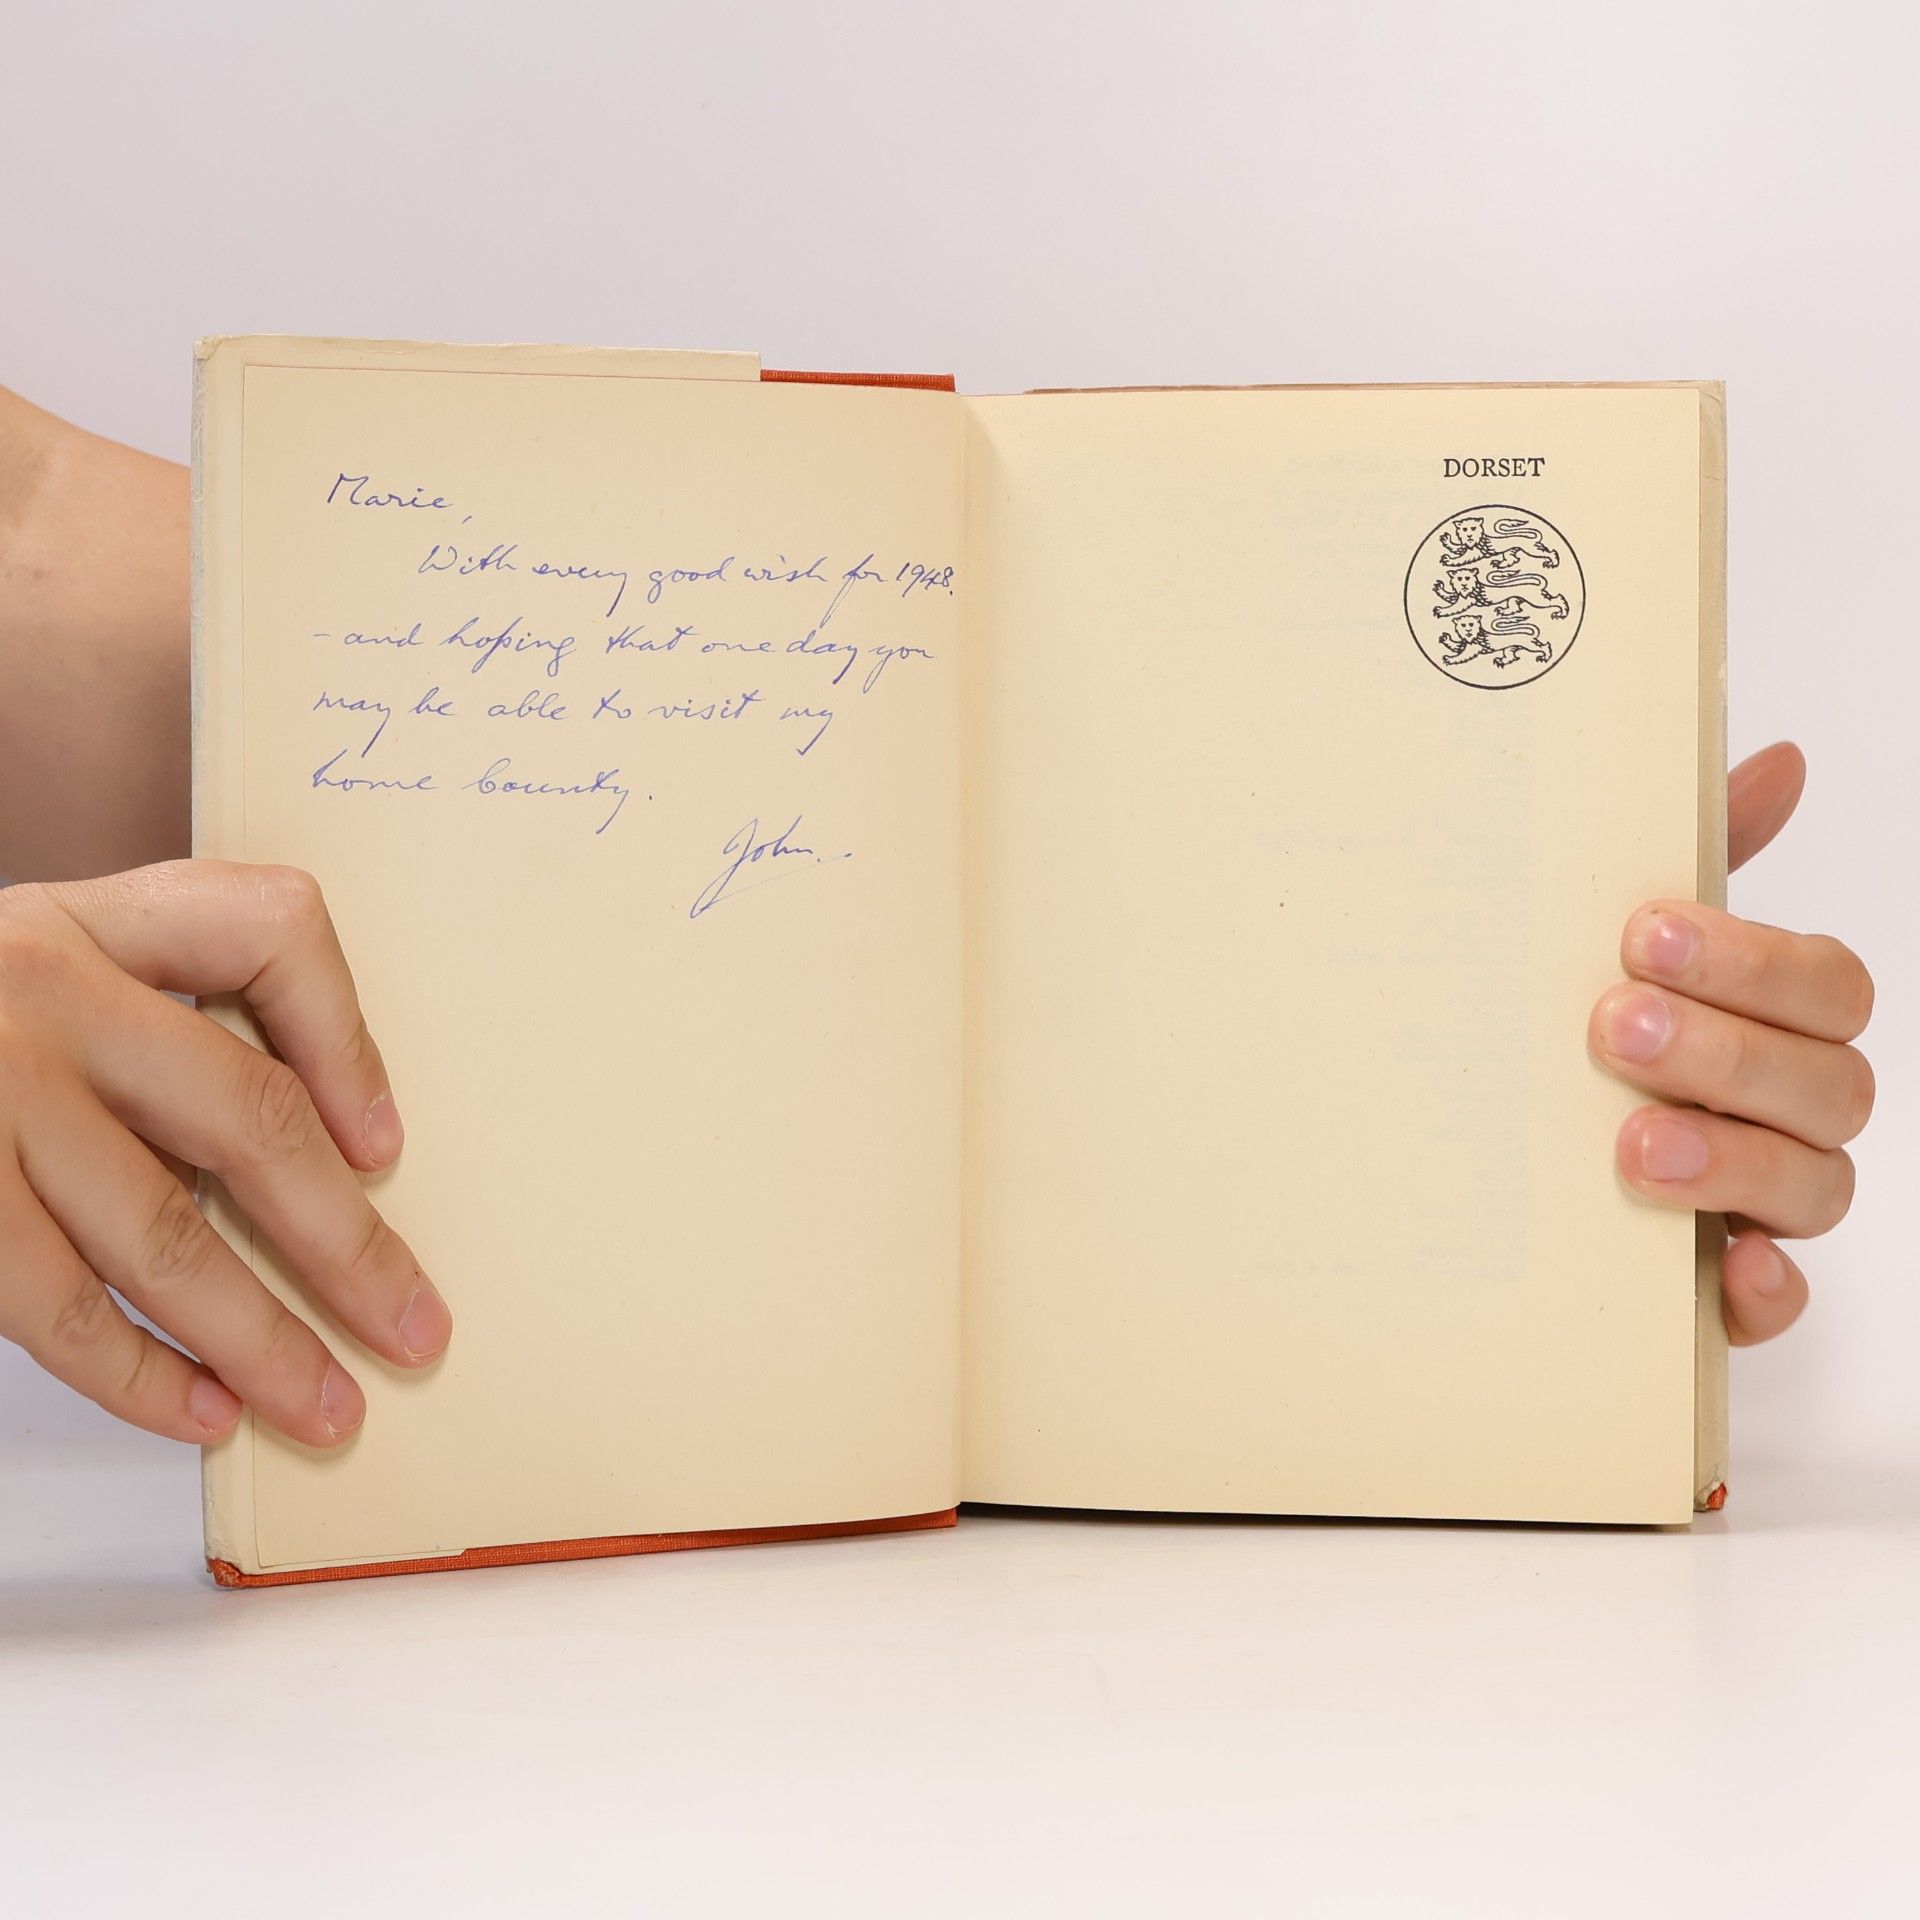 Marie,
With every good wish for 1948.
- and hoping that one day you
may be able to visit my
home County.
John.
DORSET